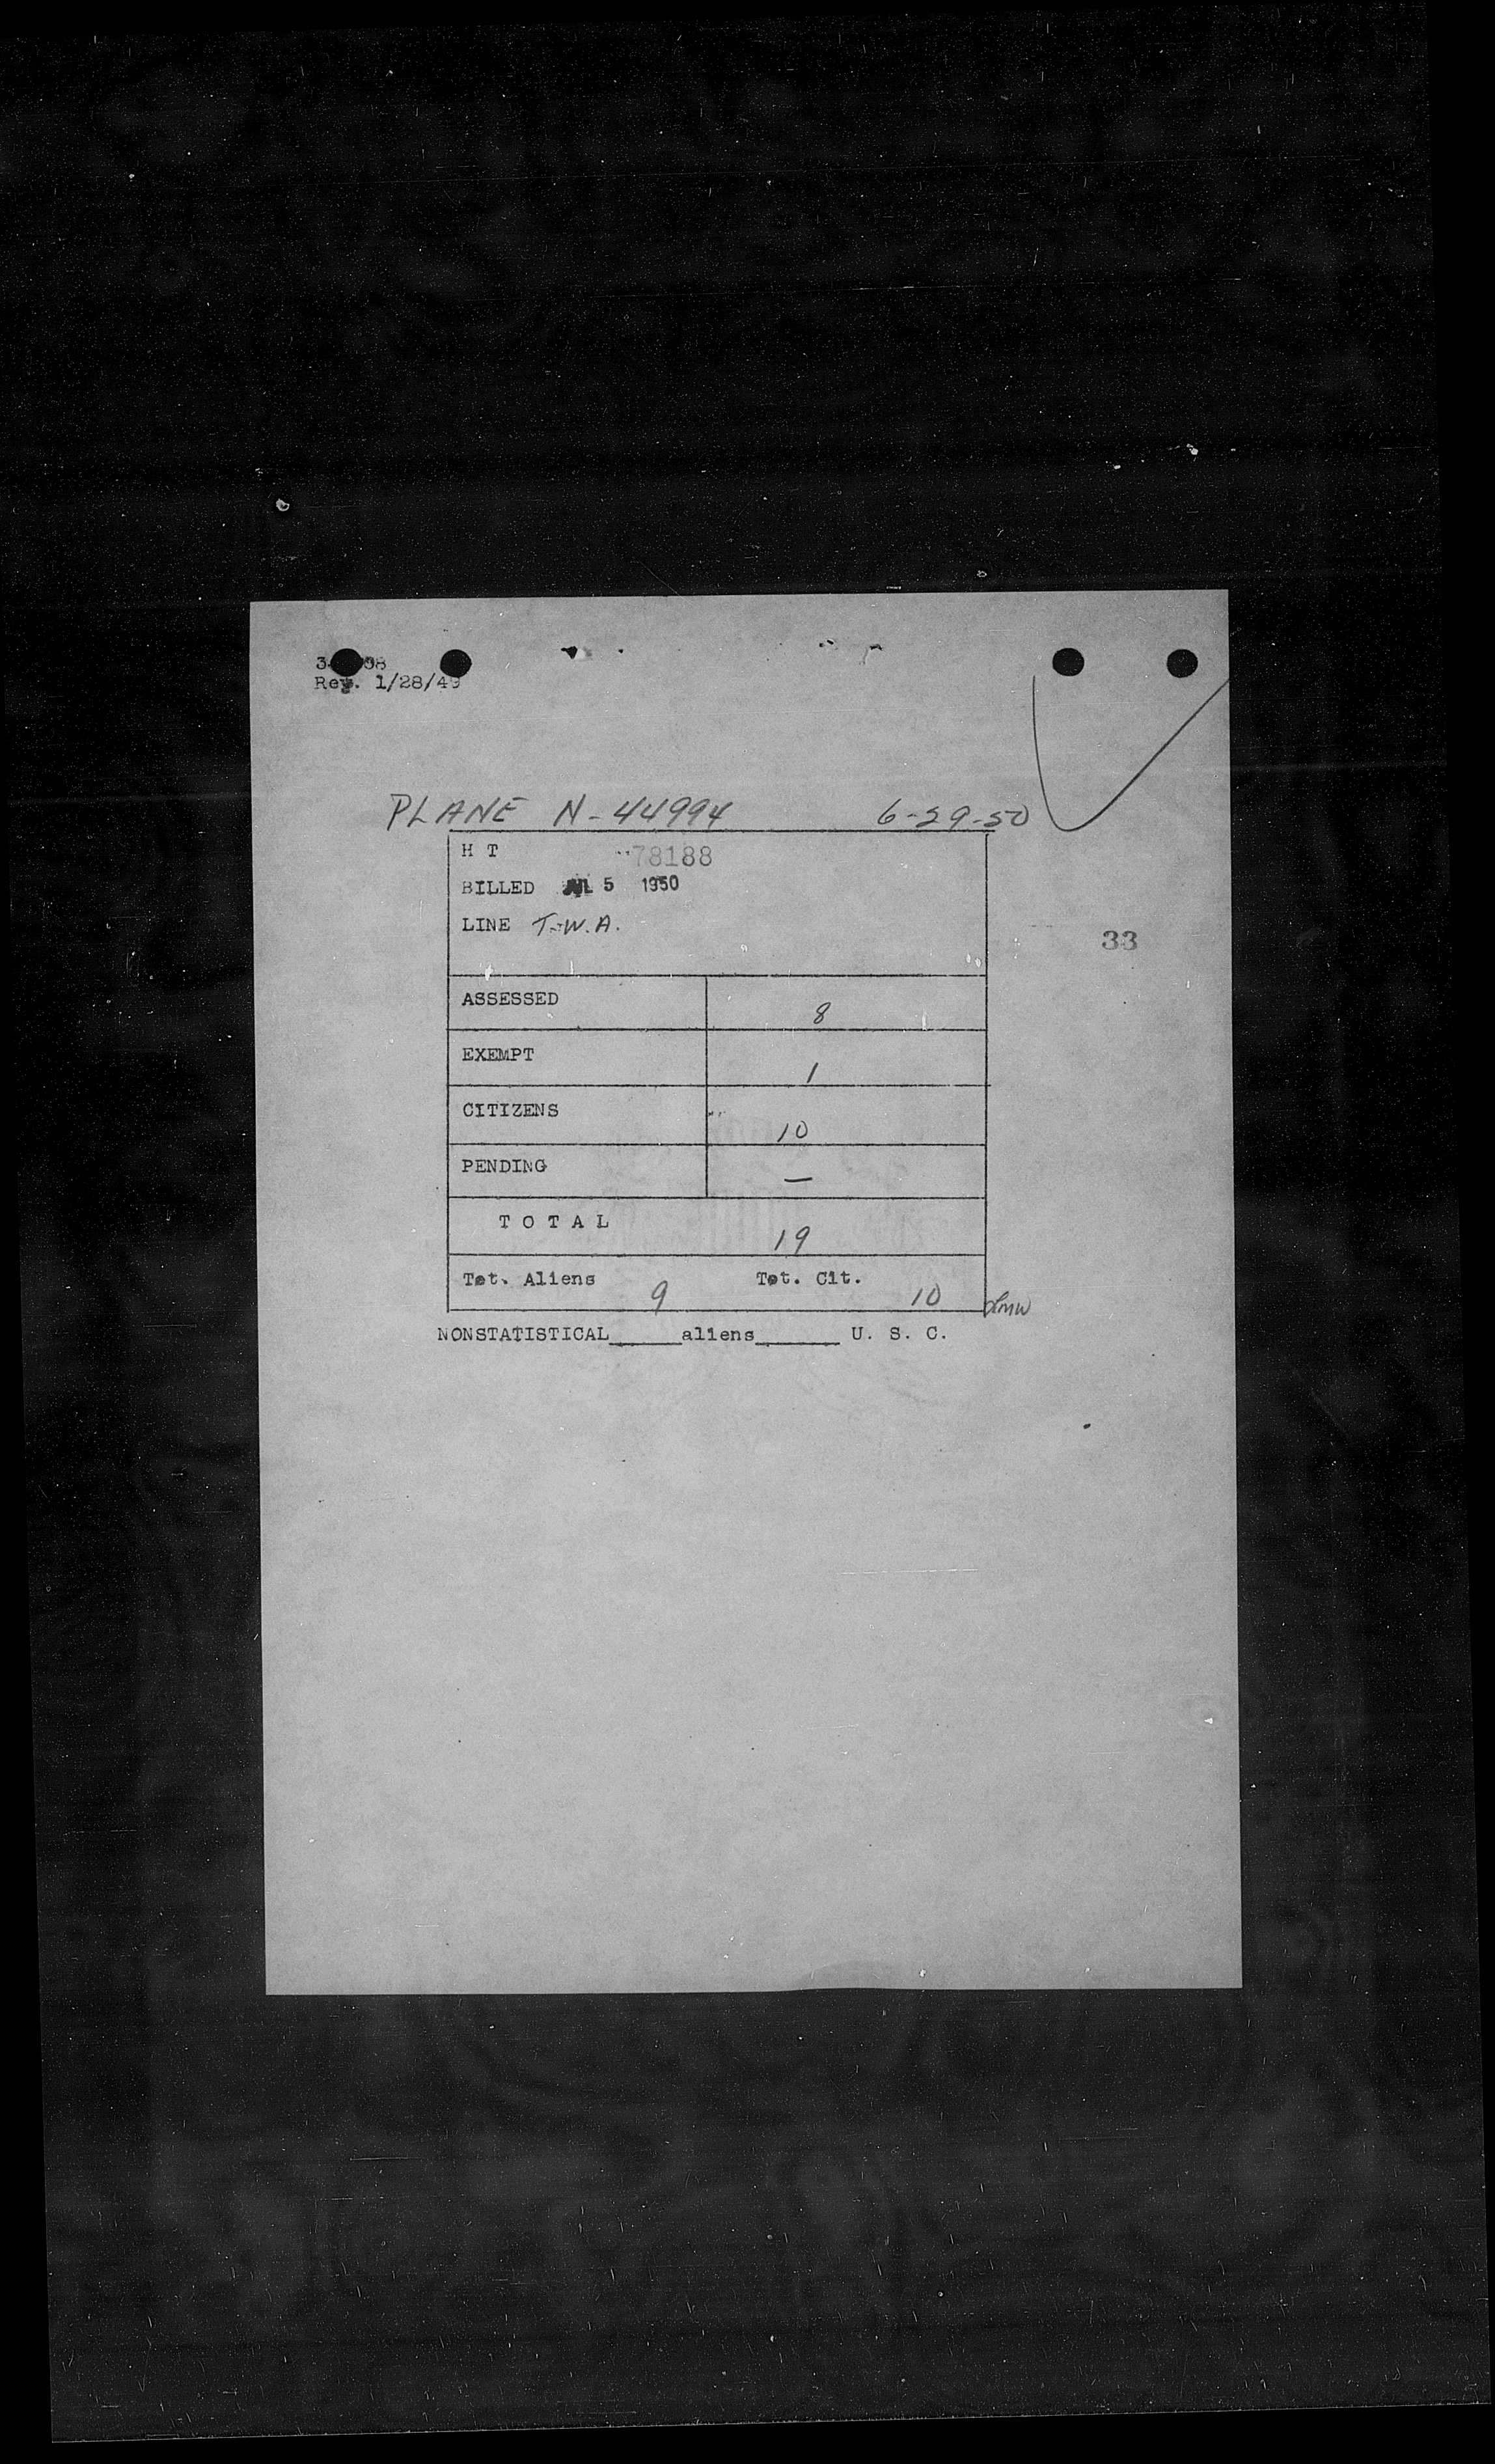 Rev. 1/28/49
PLANE N-44994 6-29-50
H T 78188
BILLED JUL 5 1950
LINE T.W.A.
33
ASSESSED 8
EXEMPT 1
CITIZENS 10
PENDING —
T O T A L 19
Tot. Aliens 9 Tot. Cit. 10
NONSTATISTICAL_____aliens______ U. S. C.